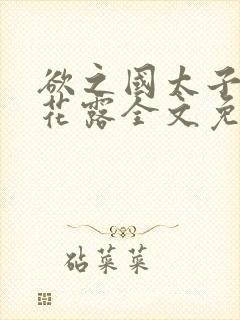 欲之國太子
花露全文免
砧菜菜